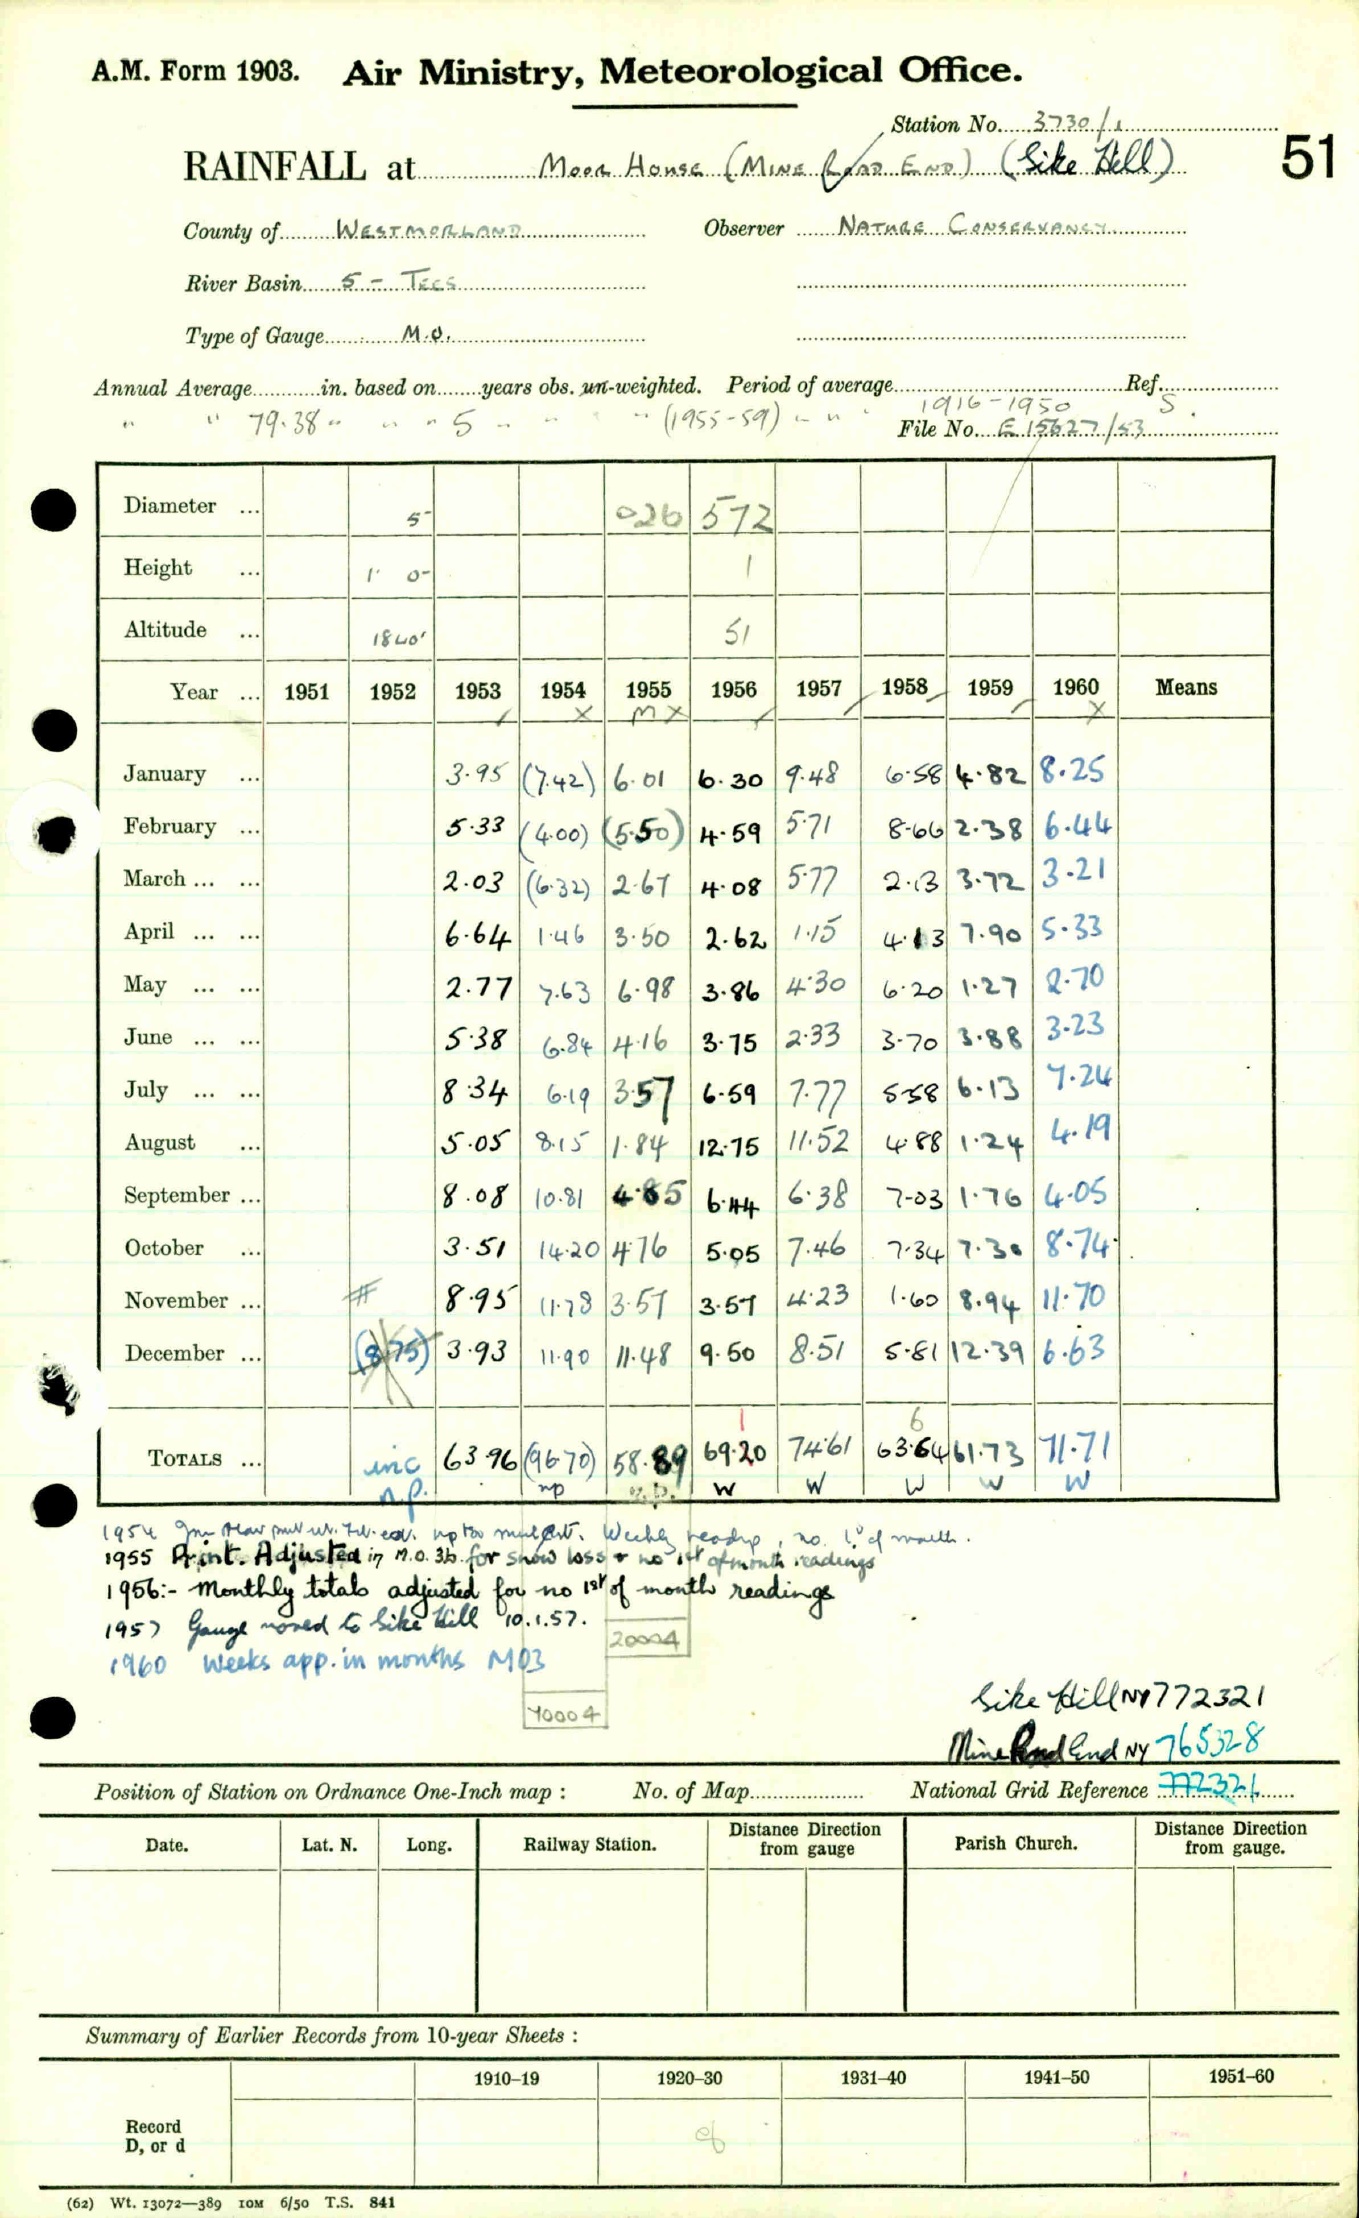 A.M. Form 1903. Air Ministry, Meteorological Office.
Station No. 3730/1
RAINFALL at Moor House (Mine Road End) (Sike Hill) 51
County of Westmorland Observer Nature Conservancy
River Basin 5 - Tees
Type of Gauge M.O.
Annual Average in. based on years obs. un-weighted. Period of average 1916-1950 Ref. S.
" " 79.38 " " " 5 " " " " (1955-59) " " " File No. E 15627/53
Diameter ... 5 026 572
Height ... 1' 0" 1
Altitude ... 1840' 51
Year ... 1951 1952 1953 1954 1955 1956 1957 1958 1959 1960 Means
/ x M x / / / / x
January ... 3.95 (7.42) 6.01 6.30 9.48 6.58 4.82 8.25
February ... 5.33 (4.00) (5.50) 4.59 5.71 8.66 2.38 6.44
March ... ... 2.03 (6.32) 2.67 4.08 5.77 2.13 3.72 3.21
April ... ... 6.64 1.46 3.50 2.62 1.15 4.13 7.90 5.33
May ... ... 2.77 7.63 6.98 3.86 4.30 6.20 1.27 2.70
June ... ... 5.38 6.84 4.16 3.75 2.33 3.70 3.88 3.23
July ... ... 8.34 6.19 3.57 6.59 7.77 5.58 6.13 7.24
August ... 5.05 8.15 1.84 12.75 11.52 4.88 1.24 4.19
September ... 8.08 10.81 4.85 6.44 6.38 7.03 1.76 4.05
October ... 3.51 14.20 4.76 5.05 7.46 7.34 7.30 8.74
November ... # 8.95 11.78 3.57 3.57 4.23 1.60 8.94 11.70
December ... (8.75) 3.93 11.90 11.48 9.50 8.51 5.81 12.39 6.63
1 6
TOTALS ... inc 63.96 (96.70) 58.89 69.20 74.61 63.64 61.73 71.71
n.p. np n.p. W W W W W
1954 Weekly readgs, no 1st of month.
1955 Print. Adjusted in M.O. 3b. for snow loss + no 1st of month readings
1956:- Monthly totals adjusted for no 1st of month readings
1957 Gauge moved to Sike Hill 10.1.57.
20004
1960 Weeks app. in months M03
Sike Hill NY 772321
70004
Mine Road End NY 765328
Position of Station on Ordnance One-Inch map : No. of Map National Grid Reference 772321
Date. Lat. N. Long. Railway Station. Distance Direction from gauge Parish Church. Distance Direction from gauge.
Summary of Earlier Records from 10-year Sheets :
1910–19 1920–30 1931–40 1941–50 1951–60
Record
D, or d
(62) Wt. 13072—389 10M 6/50 T.S. 841